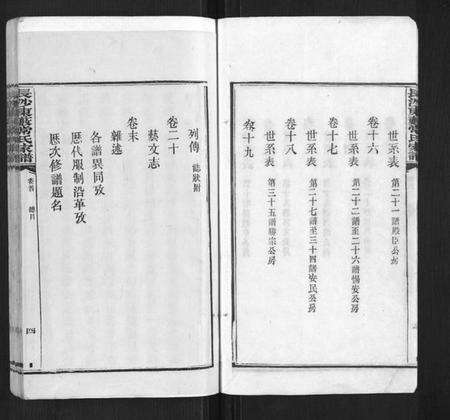 卷十六
世系表 第二十一譜殿臣公房
卷十七
世系表 第二十二譜至二十六譜惕安公房
卷十八
世系表 第二十七譜至三十四譜安民公房
卷十九
世系表 第三十五譜 宗公房
列傳 誌狀附
卷二十
藝文志
卷末
雜述
各譜異同攷
歷代服制沿革攷
歷次修譜題名
卷首 總目
四